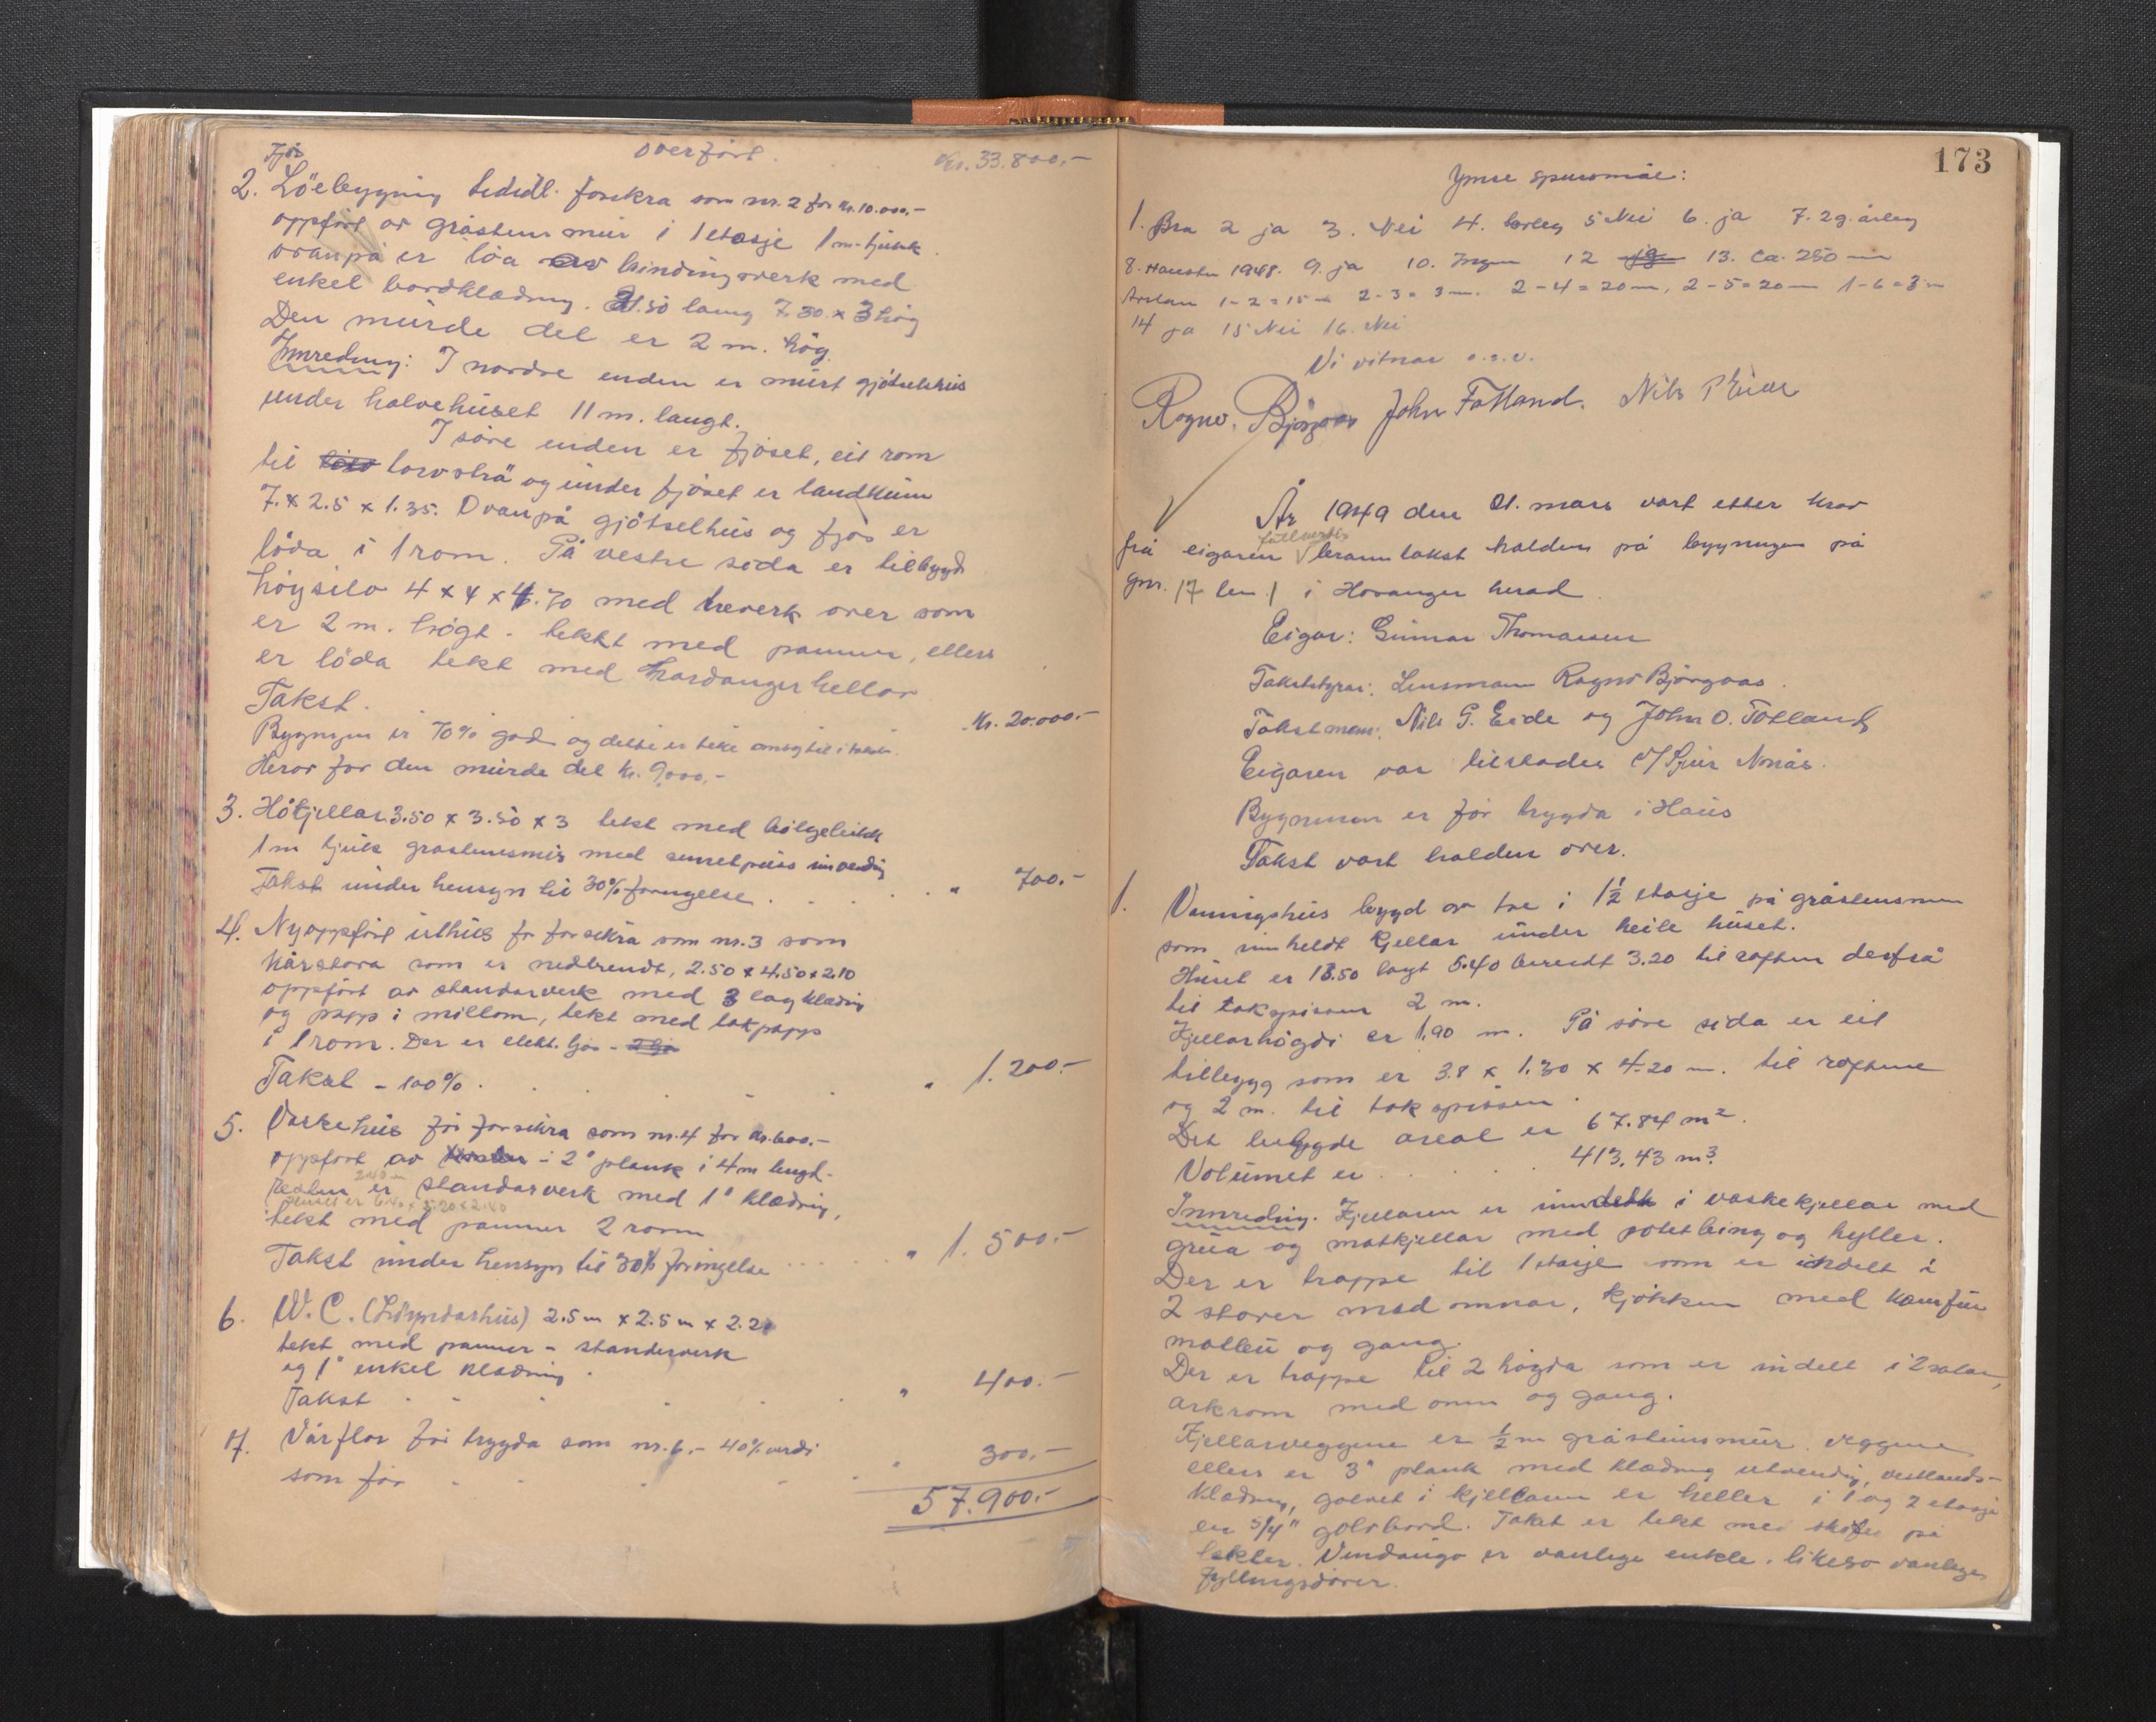 Overført. Kr. 33.800,-
2. Löebygning tididl. forsikra som nr. 2 for kr. 10.000,-
oppført av gråstensmur i 1 etasje 1 m. tjukk
ovanpå er löa av bindingsverk med
enkel bordklædning. 21.50 lang 7.30 x 3 høg
Den murde del er 2 m. høg.
Innreding: I nordre enden er murt gjötselhus
under halvehuset 11 m. langt.
I søre enden er fjøset, eit rom
til torvströ og under fjøset er landkum
7. x 2.5 x 1.35. Ovanpå gjötselhus og fjøs er
löda i 1 rom. På vestre sida er tilbygd
høysilo 4 x 4 x 4.70 med treverk over som
er 2 m. høgt - tekkt med pannor, ellers
er löda tekt med Hardangerhellor
Takst. Kr. 20.000,-
Bygnngen er 70% god og dette er teke omsyn til i taksten.
Herav for den murde del kr. 9.000,-
3. Høkjellar 3.50 x 3.50 x 3 tekt med bölgeblikk
1 m tjukk gråstensmur med sementpuss innvendig
Takst under hensyn til 30% foringelse . . . . " 700.-
4. Nyoppført uthus før forsikra som nr. 3 som
kårstova som er nedbrendt, 2.50 x 4.50 x 2.10
oppført av standarverk med 3 lag klædning
og papp i millom, tekt med takpapp
i 1 rom. Der er elekt. ljos -
Takst - 100% . . . . " 1.200.-
5. Vaskehus før forsikra som nr. 4 for kr. 600.-
oppført av - 2" plank i 4 m lengd -
2.40 m
resten er standarverk med 1" klædning,
Huset er 6.40 x 5.20 x 2.40
tekt med pannor 2 rom
Takst under hensyn til 30% foringelse . . . . " 1.500.-
6. W.C. 2.5 m x 2.5 m x 2.20
tekt med pannor - standerverk
og 1" enkel klædning .
Takst . . . . . " 400.-
7. Vårflor før trygda som nr. 6.- 40% verdi
som før - - - - " 300.-
57.900.-
173
Ymse spursmål:
1. Bra 2 ja 3. Nei 4. 5 Nei 6. ja 7. 2 g. årleg
8. Hausten 1948. 9. ja 10. Ingen 12 ja 13. Ca. 250 m
Avstan 1-2 = 15 m 2-3 = 3 m. 2-4 = 20 m, 2-5 = 20 m 1-6 = 3 m
14 ja 15 Nei 16. Nei
Vi vitnar o.s.v.
Ragnv. Bjørgaas John Totland. Nils G Eide
År 1949 den 21. mars vart etter krav
fullverdig
frå eigaren branntakst halden på bygnngen på
gnr. 17 bnr. 1 i Hosanger herad.
Eigar: Gunnar Thomassen
Takststyrar: Lensmann Ragnv Bjørgaas.
Takstmenn: Nils G. Eide og John O. Totland
Eigaren var tilstades v/ Sjur Nonås.
Bygnngen er før trygda i Haus
Takst vart halden over.
1. Vaningshus bygd av tre i 1½ etasje på gråstensmur
som inneheldt kjellar under heile huset.
Huset er 13.50 langt 5.40 breidt 3.20 til raften derfrå
til takspissen 2 m.
Kjellarhögdi er 1.90 m. På søre sida er eit
tilbygg som er 3.8 x 1.30 x 4.20 m. til raftene
og 2 m. til takspissen .
Det bebygde areal er 67.84 m².
Volumet er . . . . 413.43 m³.
Innreding. Kjellaren er inndelt i vaskekjellar med
grua og matkjellar med potetbing og hyller.
Der er trappe til 1 etasje som er inndelt i
2 stover med omnar, kjøkken med komfur
matbu og gang.
Der er trappe til 2 høgda som er indelt i 2 salar,
arkrom med omn og gang.
Kjellarveggene er ½ m gråsteinsmur. veggene
ellers er 3" plank med klædning utvendig, vestlands-
klædning, golvet i kjellaren er heller i 1 og 2 etasje
er 5/4" golvbord. Taket er tekt med skifer på
lekter. Vindaugo er vanlege enkle, likeso vanlege
fyllingsdører.